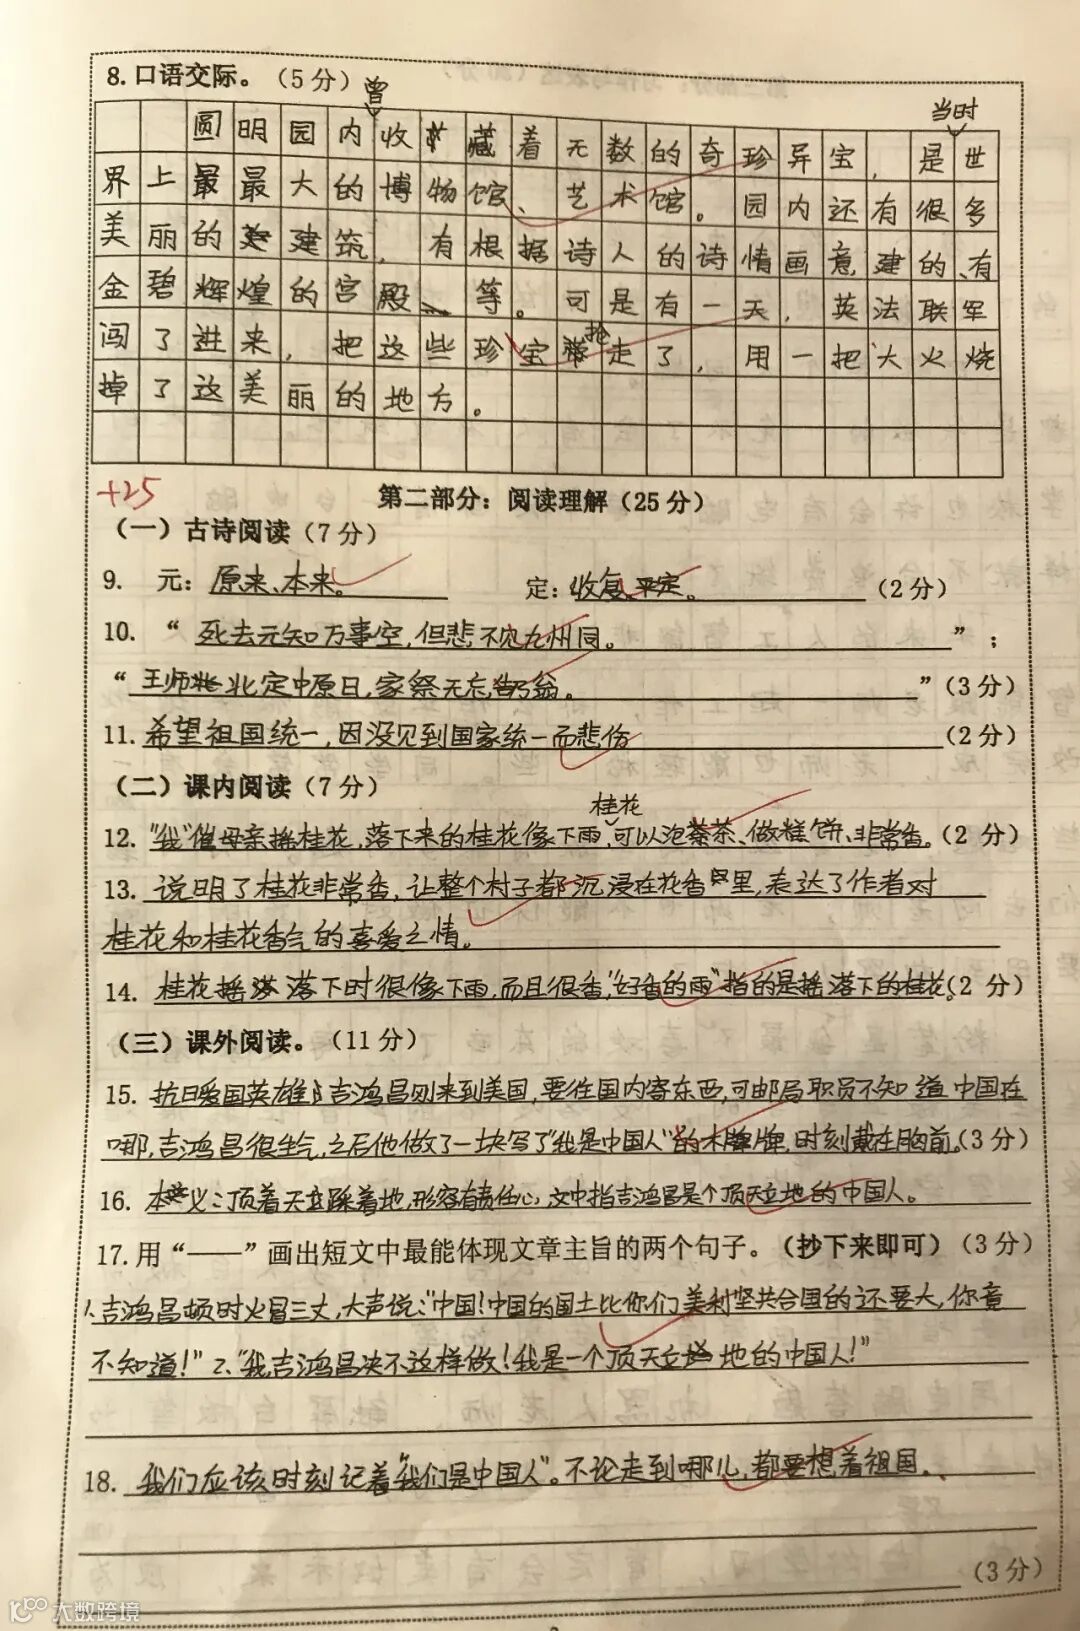 8.口语交际。（5分）
曾
当时
圆明园内收藏着无数的奇珍异宝，是世
界上最最大的博物馆、艺术馆。园内还有很多
美丽的建筑，有根据诗人的诗情画意建的、有
金碧辉煌的宫殿、等。可是有一天，英法联军
抢
闯了进来，把这些珍宝走了，用一把大火烧
掉了这美丽的地方。
+25
第二部分：阅读理解（25分）
（一）古诗阅读（7分）
9. 元：原来、本来。 定：收复、平定。（2分）
10. “死去元知万事空，但悲不见九州同。”；
“王师北定中原日，家祭无忘告乃翁。”（3分）
11. 希望祖国统一，因没见到国家统一而悲伤（2分）
（二）课内阅读（7分）
桂花
12. "我"催母亲摇桂花，落下来的桂花像下雨，可以泡茶、做糕饼、非常香。（2分）
13. 说明了桂花非常香，让整个村子都沉浸在花香里，表达了作者对
桂花和桂花香气的喜爱之情。
14. 桂花摇落下时很像下雨，而且很香，"好香的雨"指的是摇落下的桂花。（2分）
（三）课外阅读。（11分）
15. 抗日爱国英雄吉鸿昌刚来到美国，要往国内寄东西，可邮局职员不知道中国在
哪，吉鸿昌很生气，之后他做了一块写了"我是中国人"的木牌，时刻戴在胸前。（3分）
16. 本义：顶着天踩着地，形容有责任心，文中指吉鸿昌是个顶天立地的中国人。
17.用“——”画出短文中最能体现文章主旨的两个句子。（抄下来即可）（3分）
1、吉鸿昌顿时火冒三丈，大声说："中国！中国的国土比你们美利坚共合国的还要大，你竟
不知道！" 2、"我吉鸿昌决不这样做！我是一个顶天立地的中国人！"
18. 我们应该时刻记着"我们是中国人"。不论走到哪儿，都要想着祖国.
（3分）
大数跨境